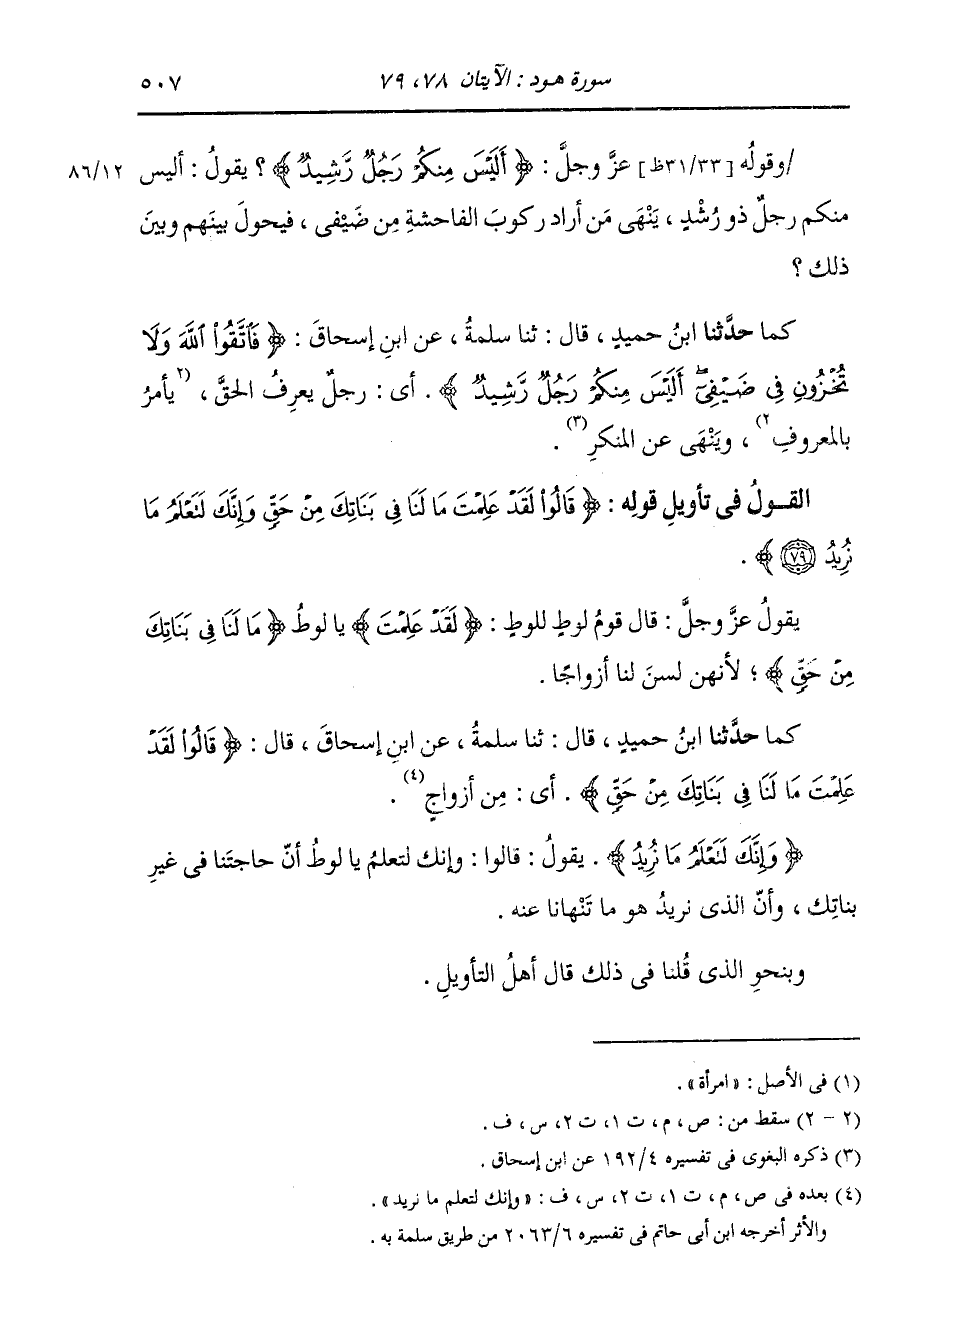 سورة هود : الآيتان ٧٨، ٧٩
٥٠٧
/وقولُه [٣١/٣٣ظ] عزَّ وجلَّ : ﴿ أَلَيْسَ مِنكُمْ رَجُلٌ رَّشِيدٌ ﴾ ؟ يقولُ : أليس ٨٦/١٢
منكم رجلٌ ذو رُشْدٍ ، يَنْهَى مَن أراد ركوبَ الفاحشةِ مِن ضَيْفى ، فيحولَ بينَهم وبينَ
ذلك ؟
كما حدَّثنا ابنُ حميدٍ ، قال : ثنا سلمةُ ، عن ابنِ إسحاقَ : ﴿ فَاتَّقُوا۟ ٱللَّهَ وَلَا
تُخْزُونِ فِى ضَيْفِىٓ ۖ أَلَيْسَ مِنكُمْ رَجُلٌ رَّشِيدٌ ﴾ . أى : رجلٌ يعرِفُ الحقَّ ، (٢يأمرُ
بالمعروفِ٢) ، ويَنْهَى عن المنكرِ(٣) .
القولُ فى تأويلِ قولِه : ﴿ قَالُوا۟ لَقَدْ عَلِمْتَ مَا لَنَا فِى بَنَاتِكَ مِنْ حَقٍّ وَإِنَّكَ لَتَعْلَمُ مَا
نُرِيدُ ٧٩ ﴾ .
يقولُ عزَّ وجلَّ : قال قومُ لوطٍ للوطٍ : ﴿ لَقَدْ عَلِمْتَ ﴾ يا لوطُ ﴿ مَا لَنَا فِى بَنَاتِكَ
مِنْ حَقٍّ ﴾ ؛ لأنهن لسنَ لنا أزواجًا .
كما حدَّثنا ابنُ حميدٍ ، قال : ثنا سلمةُ ، عن ابنِ إسحاقَ ، قال : ﴿ قَالُوا۟ لَقَدْ
عَلِمْتَ مَا لَنَا فِى بَنَاتِكَ مِنْ حَقٍّ ﴾ . أى : مِن أزواجٍ(٤) .
﴿ وَإِنَّكَ لَتَعْلَمُ مَا نُرِيدُ ﴾ . يقولُ : قالوا : وإنك لتعلمُ يا لوطُ أنّ حاجتَنا فى غيرِ
بناتِك ، وأنّ الذى نريدُ هو ما تَنْهانا عنه .
وبنحوِ الذى قُلنا فى ذلك قال أهلُ التأويلِ .
(١) فى الأصل : «امرأة» .
(٢ - ٢) سقط من : ص ، م ، ت ١، ت ٢، س ، ف .
(٣) ذكره البغوى فى تفسيره ١٩٢/٤ عن ابن إسحاق .
(٤) بعده فى ص ، م ، ت ١، ت ٢، س ، ف : «وإنك لتعلم ما نريد» .
والأثر أخرجه ابن أبى حاتم فى تفسيره ٢٠٦٣/٦ من طريق سلمة به .